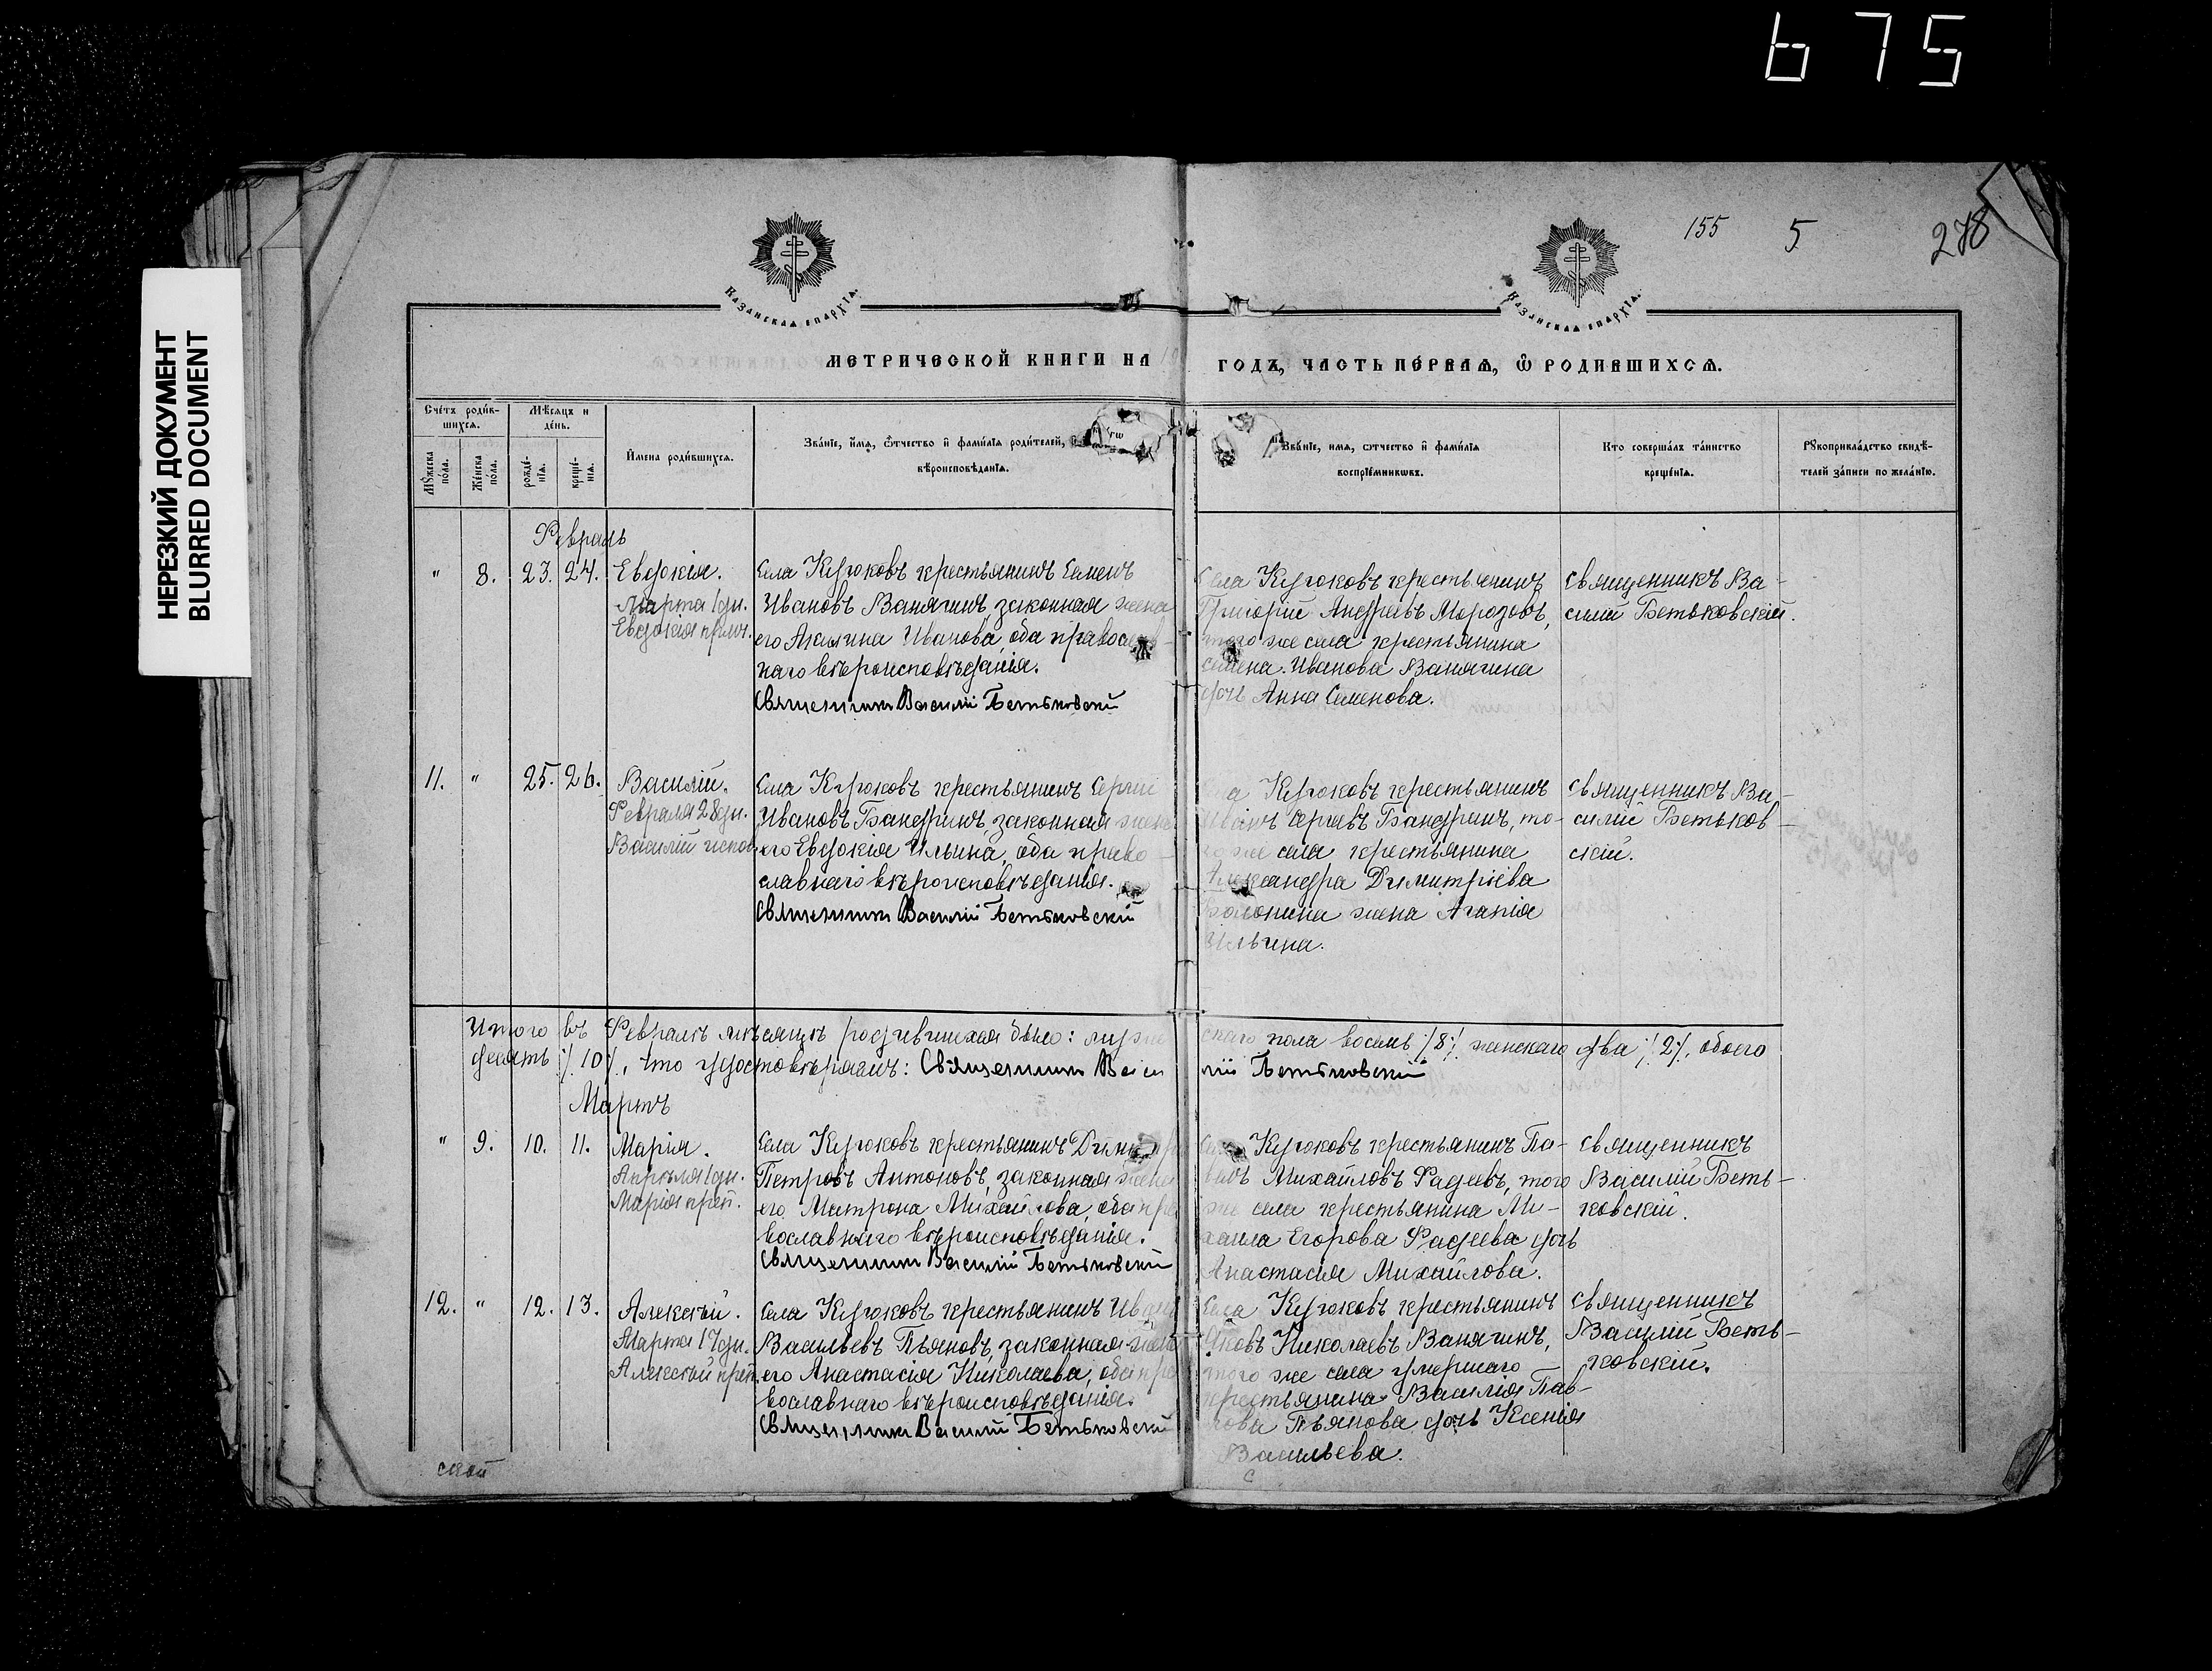 675
НЕРЕЗКИЙ ДОКУМЕНТ
BLURRED DOCUMENT
155 5 278
Казанская епархїѧ.
Казанская епархїѧ.
МЕТРИЧЕСКОЙ КНИГИ НА
ГОДЪ, ЧАСТЬ ПЕ́РВАѦ, Ѽ РОДИВШИХСѦ.
Сче́тъ роди́в-
шихсѧ.
Му́жеска
по́ла.
Же́нска
по́ла.
Мѣ́сѧцъ и
де́нь.
рожде́-
нїѧ.
креще́-
нїѧ.
И҆мена роди́вшихсѧ.
Зва́нїе, и҆мѧ, ѻ҆тчество и҆ фами́лїѧ роди́телей,
вѣроисповѣ́данїѧ.
Зва́нїе, имѧ, ѻтчество и҆ фами́лїѧ
воспрїе́мникѡвъ.
Кто соверша́лъ та́инство
креще́нїѧ.
Рꙋкоприкла́дство свидѣ́-
телей за́писи по жела́нїю.
Февраль
" 8. 23. 24. Евдокія.
Марта 1 дн.
Евдокія прмч.
Села Кугюковъ крестьянинъ Семенъ
Ивановъ Ванягинъ, законная жена
его Акилина Иванова, оба православ-
наго вѣроисповѣданія.
Священникъ Василій Бетьковскій
Села Кугюковъ крестьянинъ
Григорій Андреевъ Морозовъ,
того же села крестьянина
Семена Иванова Ванягина
дочь Анна Семенова.
Священникъ Ва-
силій Бетьковскій.
11. " 25. 26. Василій.
Февраля 28 дн.
Василій испов.
Села Кугюковъ крестьянинъ Сергій
Ивановъ Бандринъ, законная жена
его Евдокія Ильина, оба право-
славнаго вѣроисповѣданія.
Священникъ Василій Бетьковскій
Села Кугюковъ крестьянинъ
Иванъ Сергѣевъ Бандринъ, то-
го же села крестьянина
Александра Димитріева
жена Агапія
Ильина.
Священникъ Ва-
силій Бетьков-
скій.
Итого въ Февралѣ мѣсяцѣ родившихся было: мужескаго пола восемь /8/. женскаго два /2/. обоего
десять /10/, что удостовѣряемъ: Священникъ Василій Бетьковскій
Мартъ
" 9. 10. 11. Марія.
Апрѣля 1 дн.
Марія преп.
Села Кугюковъ крестьянинъ Димитрій
Петровъ Антоновъ, законная жена
его Матрона Михайлова, оба пра
вославнаго вѣроисповѣданія.
Священникъ Василій Бетьковскій
Села Кугюковъ крестьянинъ Па-
велъ Михайловъ Фадеевъ, того
же села крестьянина Ми-
хаила Егорова Фадеева дочь
Анастасія Михайлова.
Священникъ
Василій Беть-
ковскій.
12. " 12. 13. Алексѣй.
Марта 17 дн.
Алексѣй преп.
Села Кугюковъ крестьянинъ Иванъ
Васильевъ Пьяновъ, законная жена
его Анастасія Николаева, оба пра
вославнаго вѣроисповѣданія.
Священникъ Василій Бетьковскій
Села Кугюковъ крестьянинъ
Яковъ Николаевъ Ванягинъ,
того же села умершаго
крестьянина Василія Пав-
лова Пьянова дочь Ксенія
Васильева.
Священникъ
Василій Беть-
ковскій.